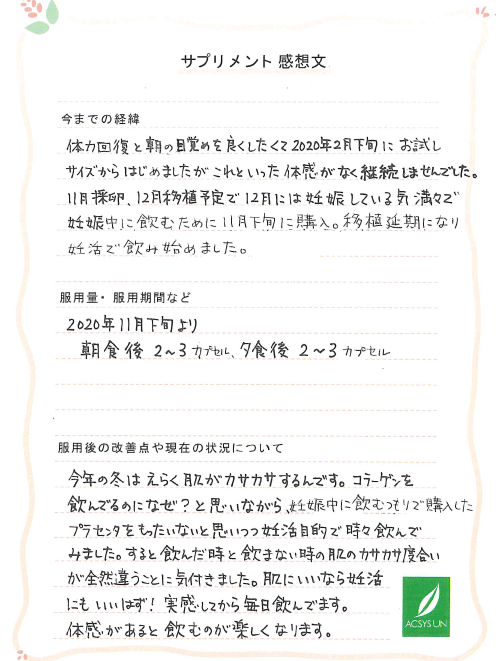 サプリメント 感想文
今までの経緯
体力回復と朝の目覚めを良くしたくて2020年2月下旬にお試し
サイズからはじめましたがこれといった体感がなく継続しませんでした。
11月採卵、12月移植予定で12月には妊娠している気満々で
妊娠中に飲むために11月下旬に購入。移植延期になり
妊活で飲み始めました。
服用量・服用期間など
2020年11月下旬より
朝食後 2~3カプセル、夕食後 2~3カプセル
服用後の改善点や現在の状況について
今年の冬はえらく肌がカサカサするんです。コラーゲンを
飲んでるのになぜ?と思いながら、妊娠中に飲むつもりで購入した
プラセンタをもったいないと思いつつ妊活目的で時々飲んで
みました。すると飲んだ時と飲まない時の肌のカサカサ度合い
が全然違うことに気付きました。肌にいいなら妊活
にもいいはず!実感してから毎日飲んでます。
体感があると飲むのが楽しくなります。
ACSYS UN